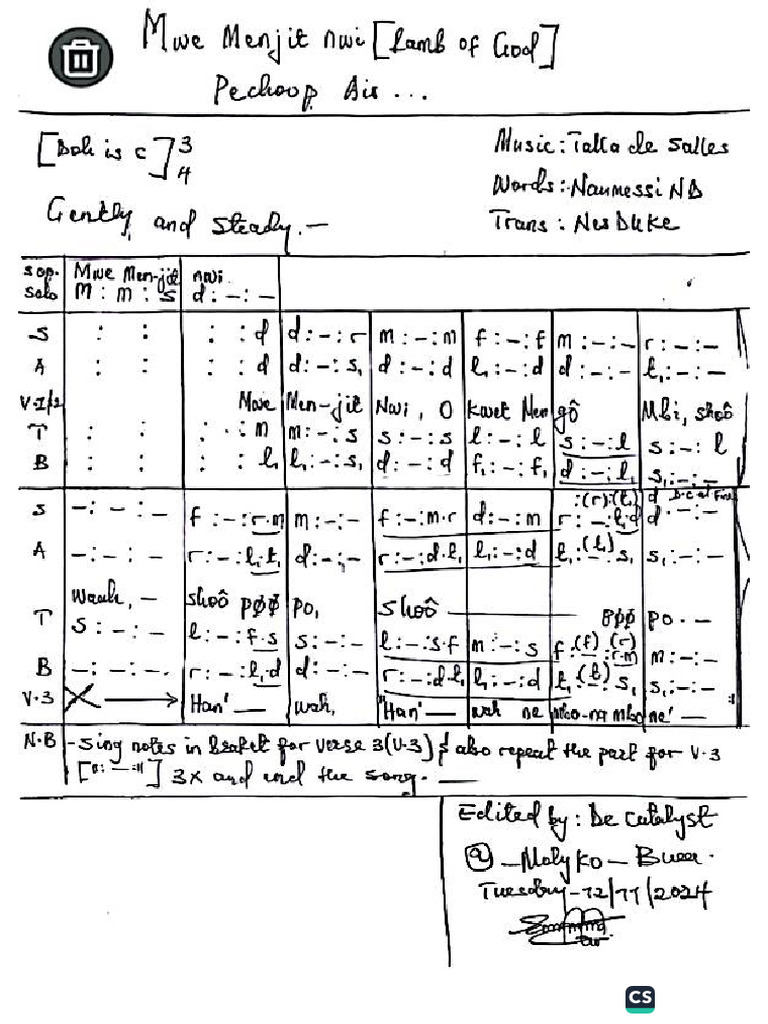 Mwe Menjit nwi [Lamb of God]
Pechoop Air ...
[Doh is C] 3/4
Music: Talla de Salles
Words: Naumessi ND
Gently and steady. –
Trans: Nes Duke
sop. solo Mwe Men-jit nwi
M : m : s d : – : –
S : : : : d d : – : r m : – : m f : – : f m : – : – r : – : –
A : : : : d d : – : s, d : – : d l, : – : d d : – : – t, : – : –
V.1/2 Mwe Men-jit Nwi, O kwet Men gô Mbi, shoô
T : : : : m m : – : s s : – : s l : – : l s : – : l s : – : l
B : : : : l, l, : – : s, d : – : d f, : – : f, d : – : l, s, : – : –
: (r) : (t,) d D.C al Fine
S – : – : – f : – : r.m m : – : – f : – : m.r d : – : m r : – : l,.d d – : –
A – : – : – r : – : l,.t, d : – : – r : – : d.l, l, : – : d t, : (t,) – : s, s, : – : –
Wauh, – shoô pøø po, shoô pøø po. –
T s : – : – l : – : f.s s : – : – l : – : s.f m : – : s f : (f) – : (r) r.m m : – : –
B – : – : – . r : – : l,.d d : – : – r : – : d.t, l, : – : d t, : (t,) – : s, s, : – : –
V.3 Han' — wah, "Han' — wah ne mbo-na mbo ne' —
N.B – Sing notes in braket for verse 3 (V.3) & also repeat the part for V.3
[ 𝄆 : – : 𝄇 ] 3x and end the song. —
Edited by: De Catalyst
@ – Molyko – Buea.
Tuesday – 12/11/2024
CS